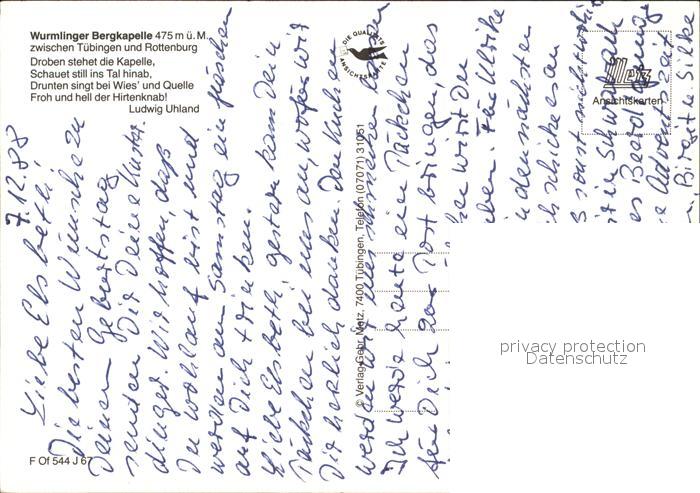 Wurmlinger Bergkapelle 475 m ü. M.
zwischen Tübingen und Rottenburg
Droben stehet die Kapelle,
Schauet still ins Tal hinab,
Drunten singt bei Wies' und Quelle
Froh und hell der Hirtenknab!
Ludwig Uhland
DIE QUALITÄTS
ANSICHTSKARTE
Metz
Ansichtskarten
© Verlag Gebr. Metz, 7400 Tübingen, Telefon (07071) 31051
F Of 544 J 67
privacy protection
Datenschutz
7.12.88
Liebe Elsbeth!
Die besten Wünsche zu
Deinem Geburtstag
senden Dir Deine
Wir hoffen, daß
Du wohlauf bist und
werden am Samstag ein
auf Dich trinken.
Liebe Elsbeth, gestern kam Dein
Päckchen bei uns an, wofür wir
Dir herzlich danken. Den Kuchen
werden wir uns schmecken lassen
Ich werde heute ein Päckchen
für Dich zur Post bringen, das
wirst Du
Für Ulrike
den nächsten
ich schicke es an
sonst nicht
ist in Schwabach
Advents
Birgit u. Silke